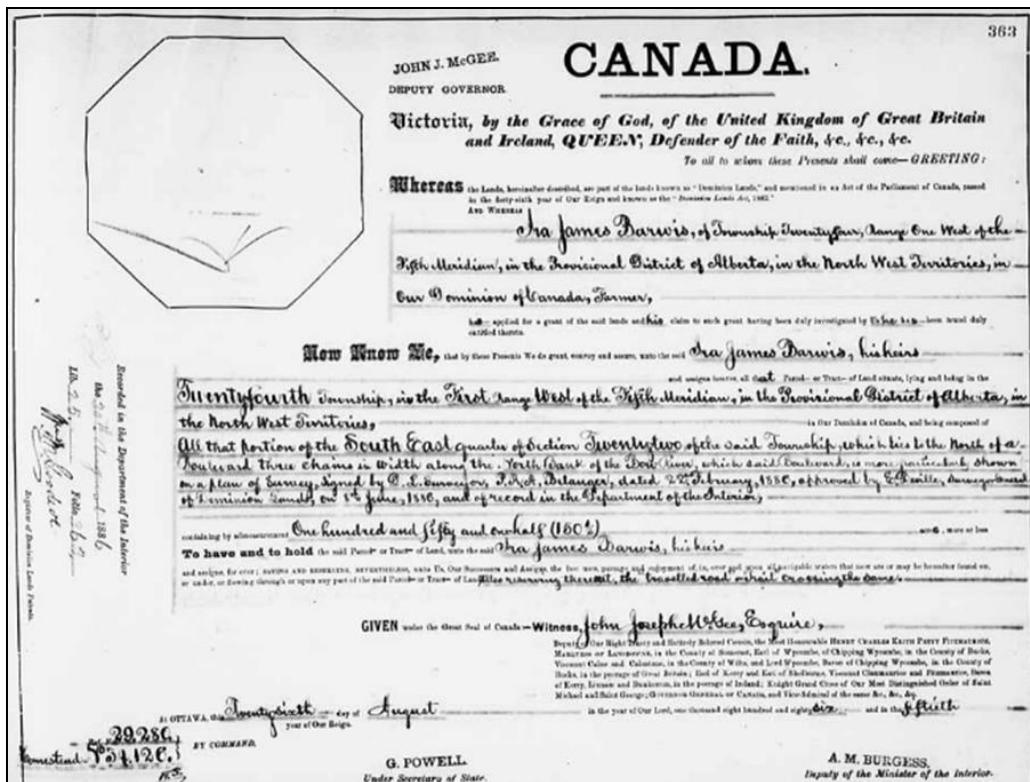 363
JOHN J. McGEE.
DEPUTY GOVERNOR
CANADA.
Victoria, by the Grace of God, of the United Kingdom of Great Britain
and Ireland, QUEEN, Defender of the Faith, &c., &c., &c.
To all to whom these Presents shall come—GREETING:
Whereas the Lands, hereinafter described, are part of the lands known as "Dominion Lands," and mentioned in an Act of the Parliament of Canada, passed
in the forty-sixth year of Our Reign and known as the "Dominion Lands Act, 1883."
AND WHEREAS
Ira James Barwis, of Township Twentyfour, Range One West of the
Fifth Meridian, in the Provisional District of Alberta, in the North West Territories, in
Our Dominion of Canada, Farmer,
has applied for a grant of the said lands and his claim to such grant having been duly investigated by Us he has been found duly
entitled thereto.
Now Know Ye, that by these Presents We do grant, convey and assure, unto the said Ira James Barwis, his heirs
and assigns forever, all that Parcel or Tract of Land situate, lying and being in the
Twentyfourth Township, in the First Range West of the Fifth Meridian, in the Provisional District of Alberta, in
the North West Territories,
in Our Dominion of Canada, and being composed of
All that portion of the South East quarter of Section Twentytwo of the said Township, which lies to the North of a
Boulevard three chains in width along the North Bank of the Bow River, which said Boulevard, is more particularly shown
on a plan of Survey, signed by D. L. Surveyor, Belanger, dated February, 1886, approved by E. Deville, Surveyor General
of Dominion Lands, on 8th June, 1886, and of record in the Department of the Interior,
containing by admeasurement One hundred and fifty and one half acres, more or less
To have and to hold the said Parcel or Tract of Land, unto the said Ira James Barwis, his heirs
and assigns, for ever; SAVING AND RESERVING, NEVERTHELESS, unto Us, Our Successors and Assigns, the free uses, passage and enjoyment of, in, over and upon all navigable waters that now are or may be hereafter found on,
or under, or flowing through or upon any part of the said Parcel or Tract of Land also reserving thereout, the travelled road or trail crossing the same.
GIVEN under the Great Seal of Canada—Witness, John Joseph McGee, Esquire,
Deputy of Our Right Trusty and Entirely Beloved Cousin, the Most Honourable HENRY CHARLES KEITH PETTY FITZMAURICE,
MARQUESS OF LANSDOWNE, in the County of Somerset, Earl of Wycombe, of Chipping Wycombe, in the County of Bucks,
Viscount Calne and Calnstone, in the County of Wilts, and Lord Wycombe, Baron of Chipping Wycombe, in the County of
Bucks, in the peerage of Great Britain; Earl of Kerry and Earl of Shelburne, Viscount Clanmaurice and Fitzmaurice, Baron
of Kerry, Lixnaw and Dunkerron, in the peerage of Ireland; Knight Grand Cross of Our Most Distinguished Order of Saint
Michael and Saint George; GOVERNOR GENERAL OF CANADA, and Vice-Admiral of the same &c, &c, &c.
At OTTAWA, this Twenty sixth day of August in the year of Our Lord, one thousand eight hundred and eighty six and in the fiftieth
year of Our Reign.
29286
BY COMMAND,
Homestead
G. POWELL
Under Secretary of State.
A. M. BURGESS
Deputy of the Minister of the Interior.
Recorded in the Department of the Interior
the 28th August 1886
Lib. 25, Folio 363
Registrar of Dominion Lands Patents.